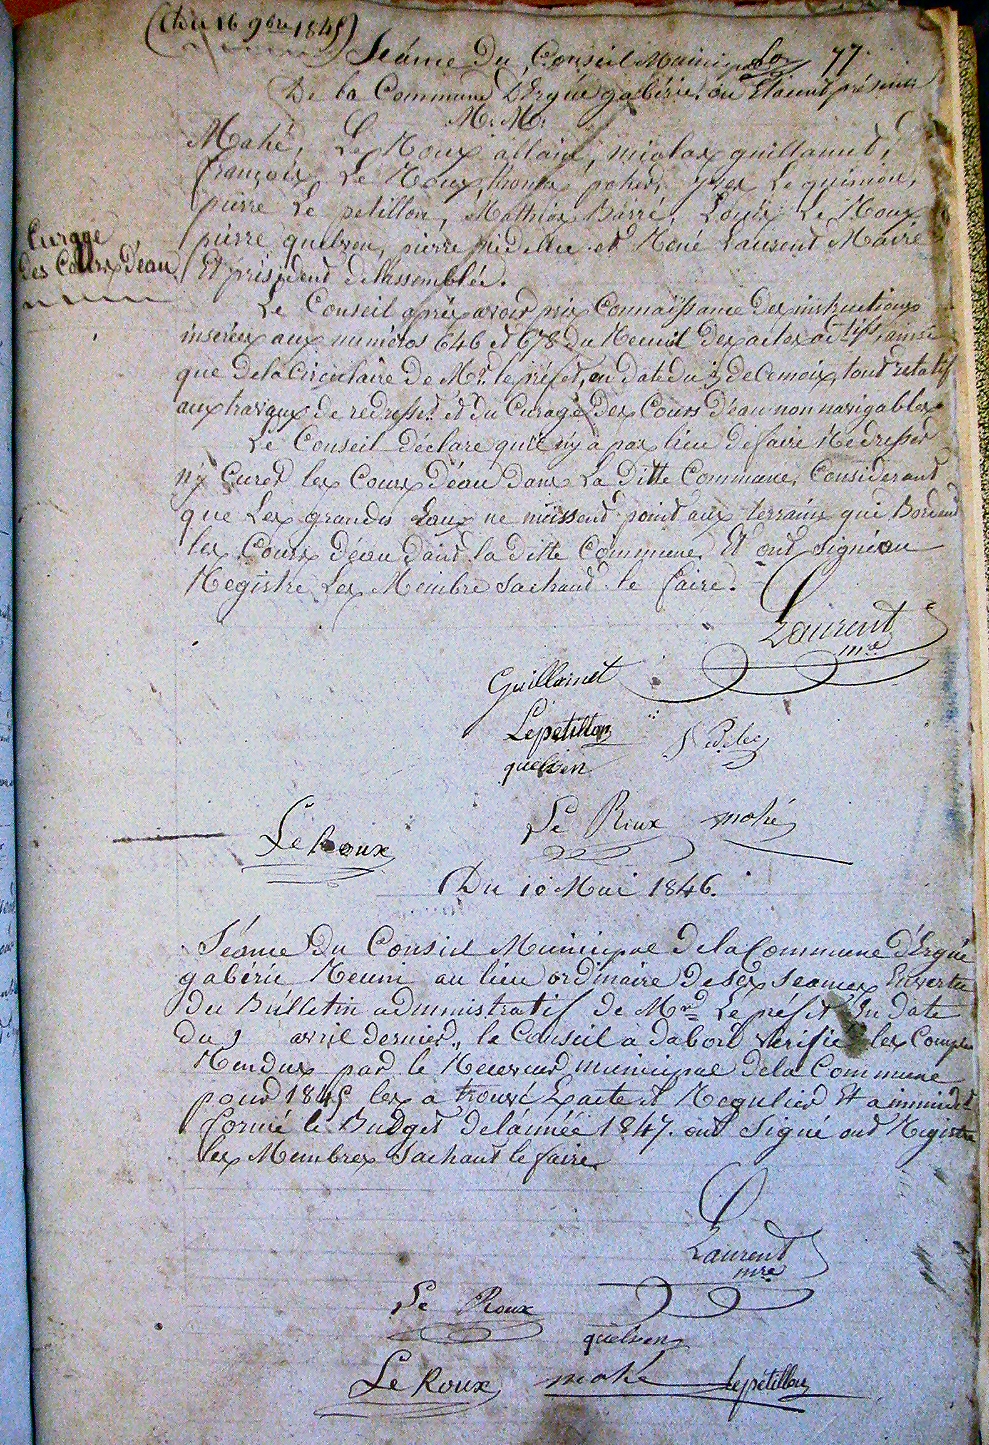 (Du 16 9bre 1845)
77.
Séance Du Conseil Municipal
De la Commune D'Ergué gabéric, ou Etaient présents
M. M.
Mahé, Le Roux allain, nicolas guillamet,
françois Le Roux, pohed, yves Le quinion,
pierre Le petillon, Mathias Barré, Louis Le Roux,
pierre quelven, pierre nedellec et René Laurent Maire
Et président de l'assemblée.
Curage
Des Cours D'eau
Le Conseil après avoir pris Connaissance Des instructions
inserées aux numéros 646 et 678 du Recueil Des actes adtifs, ainsi
que de la Circulaire de Mr. le préfet, en date du 3 de Ce mois, tout relatif
aux travaux de redresst. et du Curage Des Cours D'eau non navigables
Le Conseil déclare qu'il n'y a pas lieu de faire Redresser
n'y Curer les Cours D'éau Dans La Ditte Commune, Considerant
que Les grandes Eaux ne nuissent point aux terrains qui Bordent
les Cours d'éau Dans la Ditte Commune. Et ont Signé au
Registre Les Membre Sachant le faire.
Laurent
mre
Guillamet
Lepetillon Nédelec
quelven
Le Roux Le Roux mahé
Du 10 Mai 1846.
Séance Du Conseil Municipal De la Commune d'Ergué
gabéric Reuni au lieu ordinaire De Ses Seances En vertu
du Bulletin administratif de Mr. Le préfet En date
du 9 avril dernier, le Conseil à Dabord Vérifié les Comptes
Rendus par le Receveur municipal De la Commune
pour 1845 les a trouvé Exacte et Regulier Et a
formé le Budget De l'année 1847. ont Signé Registre
les Membres Sachant le faire
Laurent
mre
Le Roux
quelven
Le Roux mahé Lepétillon